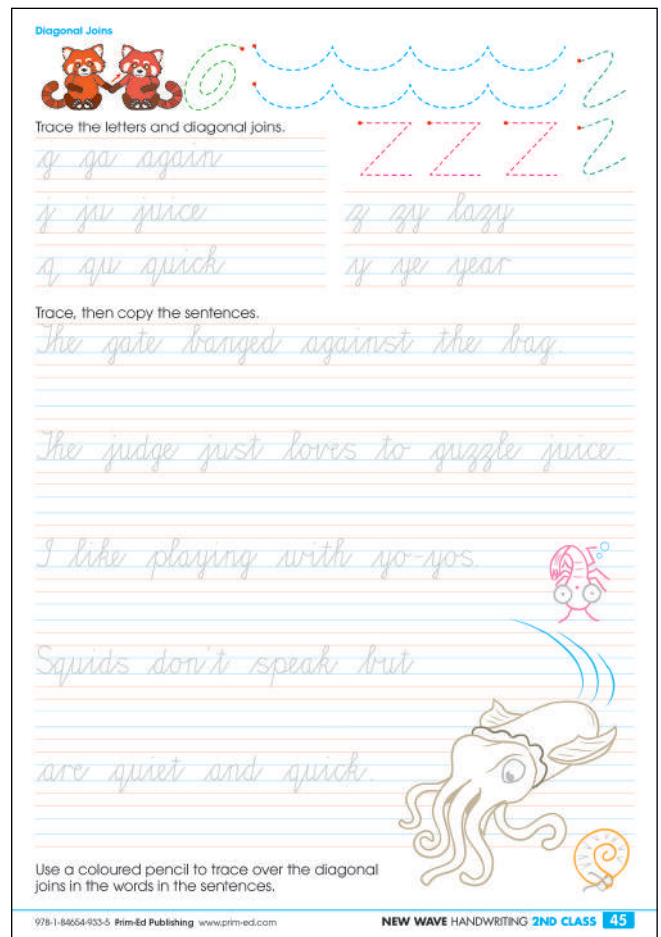 Diagonal Joins
Trace the letters and diagonal joins.
g ga again
j ju juice
z zy lazy
q qu quick
y ye year
Trace, then copy the sentences.
The gate banged against the bag.
The judge just loves to guzzle juice.
I like playing with yo-yos.
Squids don't speak but
are quiet and quick.
Use a coloured pencil to trace over the diagonal
joins in the words in the sentences.
978-1-84654-933-5 Prim-Ed Publishing www.prim-ed.com NEW WAVE HANDWRITING 2ND CLASS 45